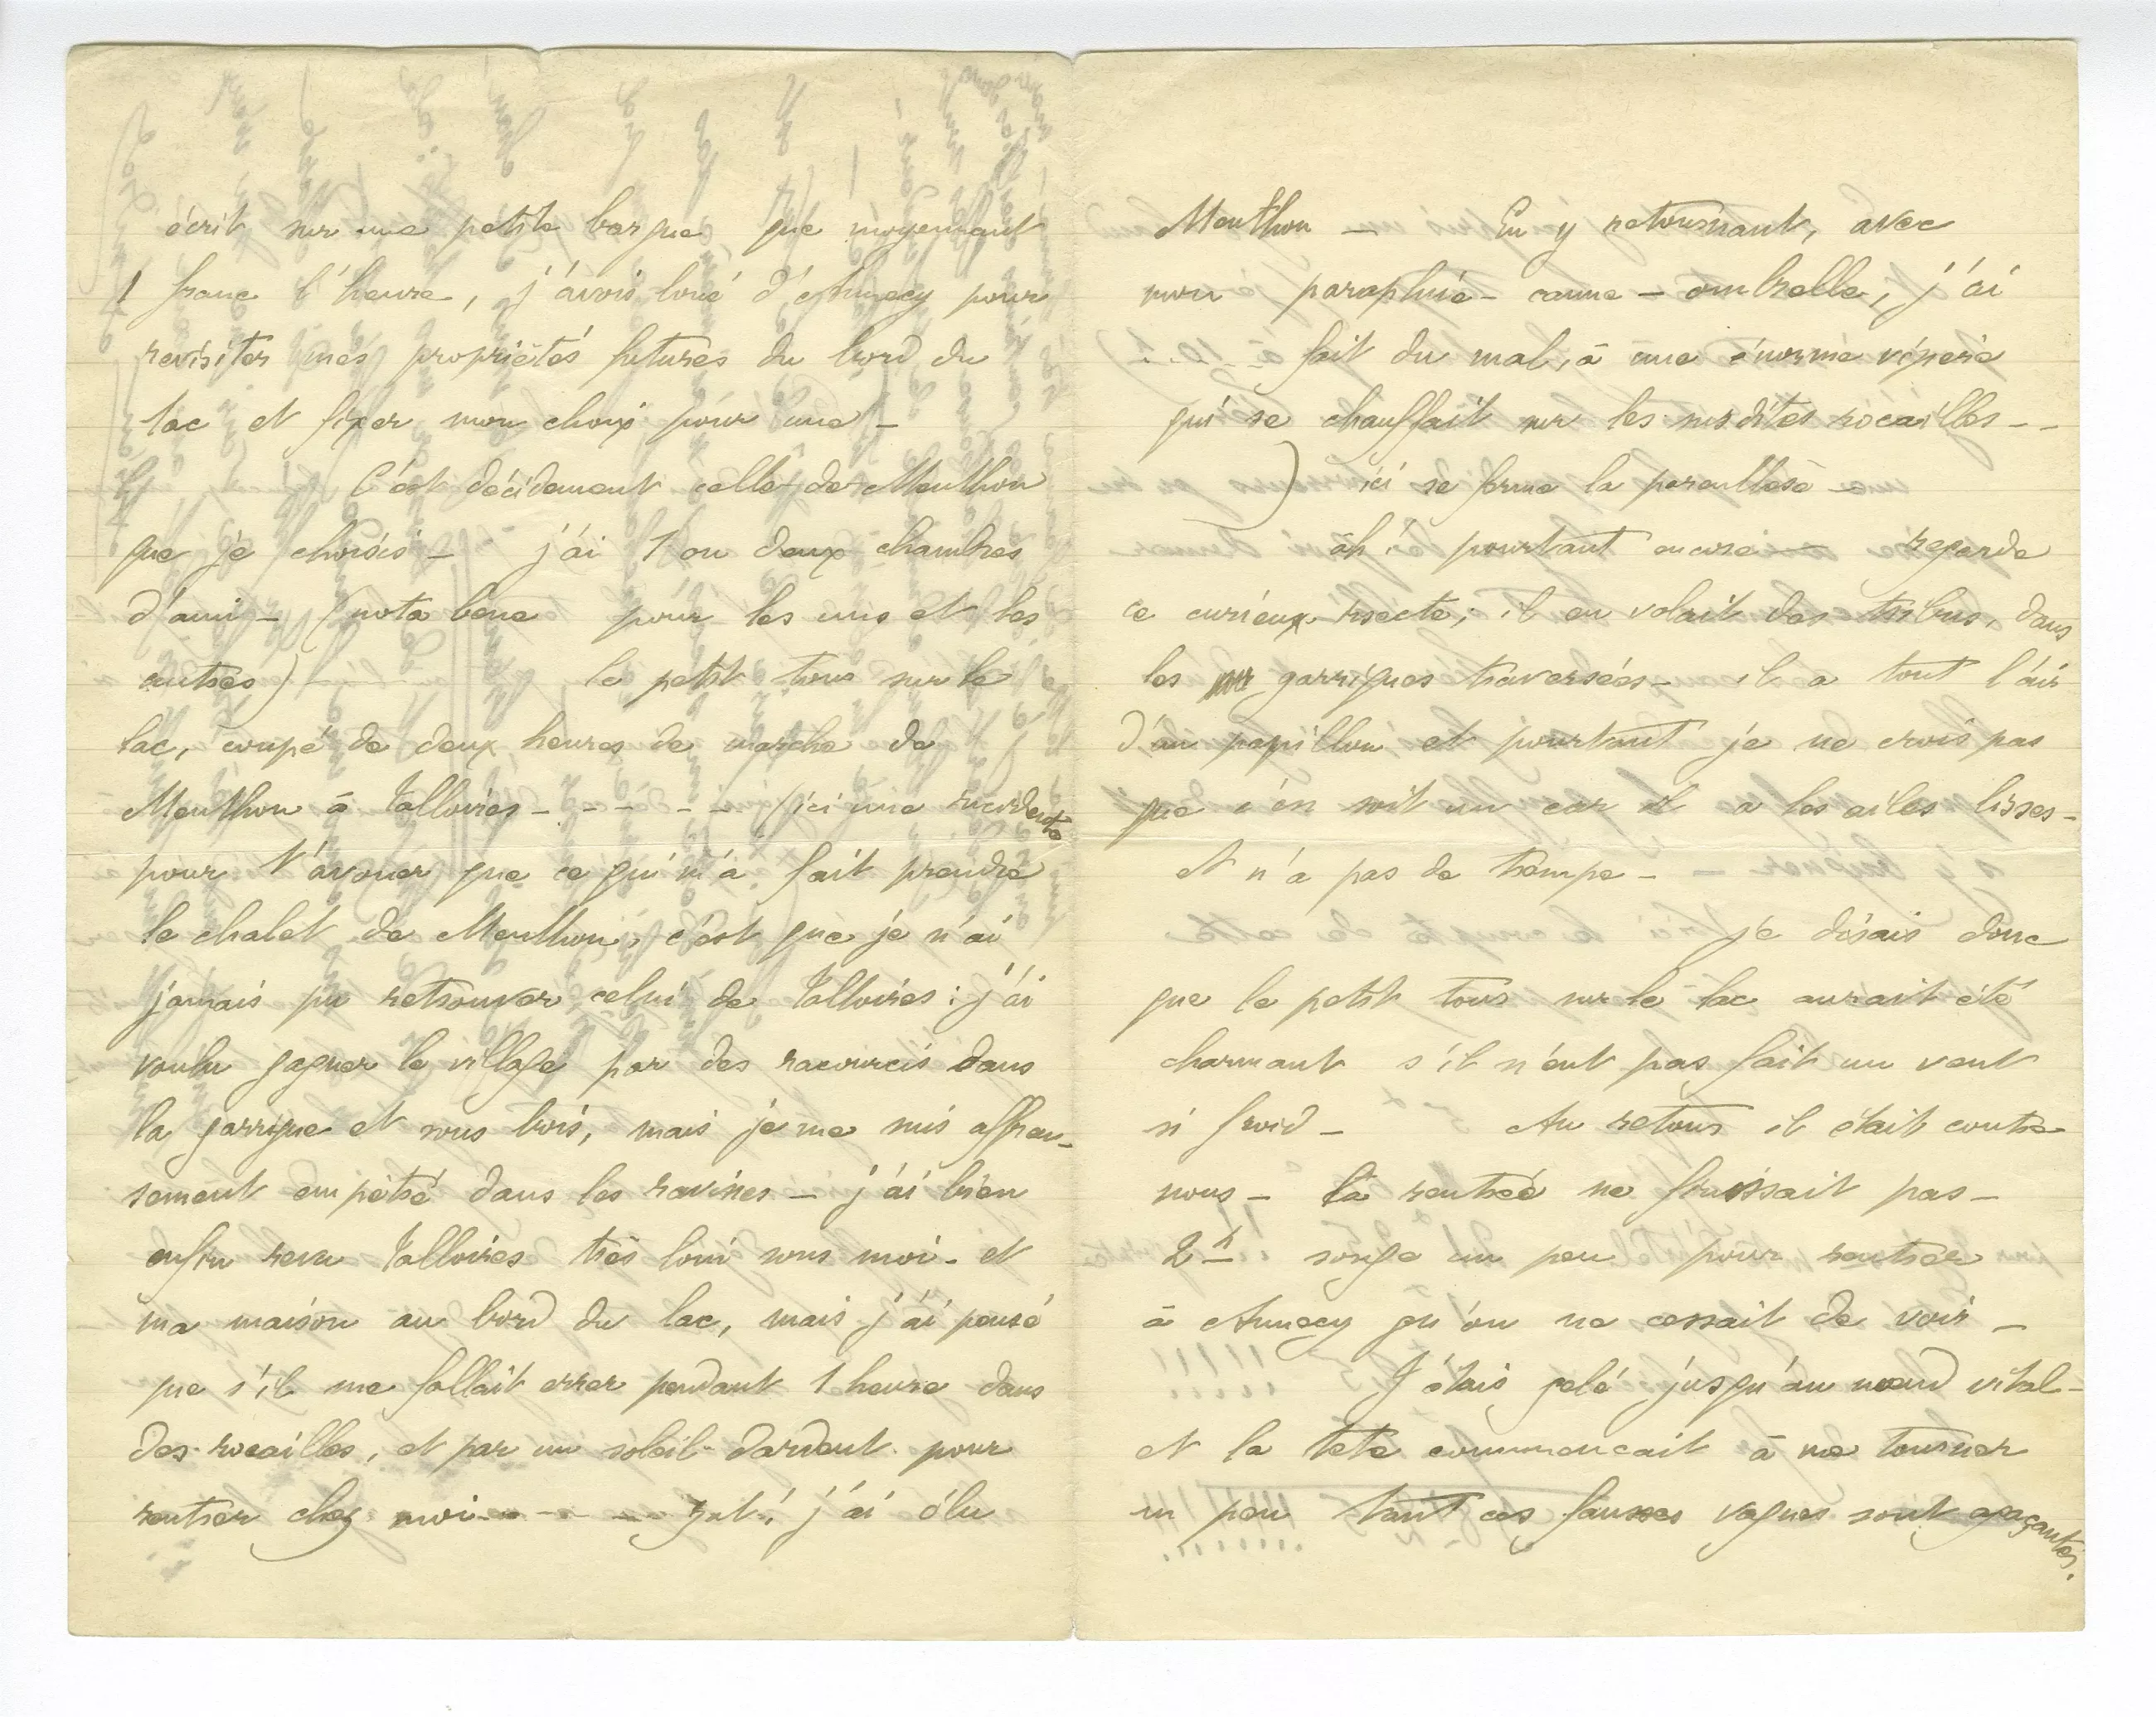 écrit sur une petite barque que moyennant
1 franc l'heure, j'avais loué d'Annecy pour
revisiter mes propriétés futures du bord du
lac et fixer mon choix pour une —
C'est décidement celle de Menthon
que je choisis — j'ai 1 ou deux chambres
d'ami — (nota bene pour les uns et les
autres) le petit tour sur le
lac, coupé de deux heures de marche de
Menthon à Talloires - - - - - (ici une incidente
pour t'avouer que ce qui m'a fait prendre
le chalet de Menthon, c'est que je n'ai
jamais pu retrouver celui de Talloires : j'ai
voulu gagner le village par des racourcis dans
la garrigue et sous bois, mais je me suis affreu-
sement empêtré dans les ravines — j'ai bien
enfin revu Talloires très loin sous moi - et
ma maison au bord du lac, mais j'ai pensé
que s'il me fallait errer pendant 1 heure dans
des rocailles, et par un soleil dardant pour
rentrer chez moi - - - - zut ! j'ai élu
Menthon — En y retournant, avec
mon parapluie - canne - ombrelle, j'ai
fait du mal, à une énorme vipère
qui se chauffait sur les susdites rocailles - -
) ici se ferme la parenthèse —
ah ! pourtant encore — regarde
ce curieux insecte ; il en volait des tribus, dans
les garrigues traversées - il a tout l'air
d'un papillon et pourtant je ne crois pas
que c'en soit un car il a les ailes lisses -
et n'a pas de trompe -
Je disais donc
que le petit tour sur le lac aurait été
charmant s'il n'eut pas fait un vent
si froid — Au retour il était contre
nous — la rentrée ne finissait pas -
2h songe un peu pour rentrer
à Annecy qu'on ne cessait de voir —
J'étais gelé jusqu'au nœud vital -
et la tete commencait à me tourner
un peu tant ces fausses vagues sont agaçantes.